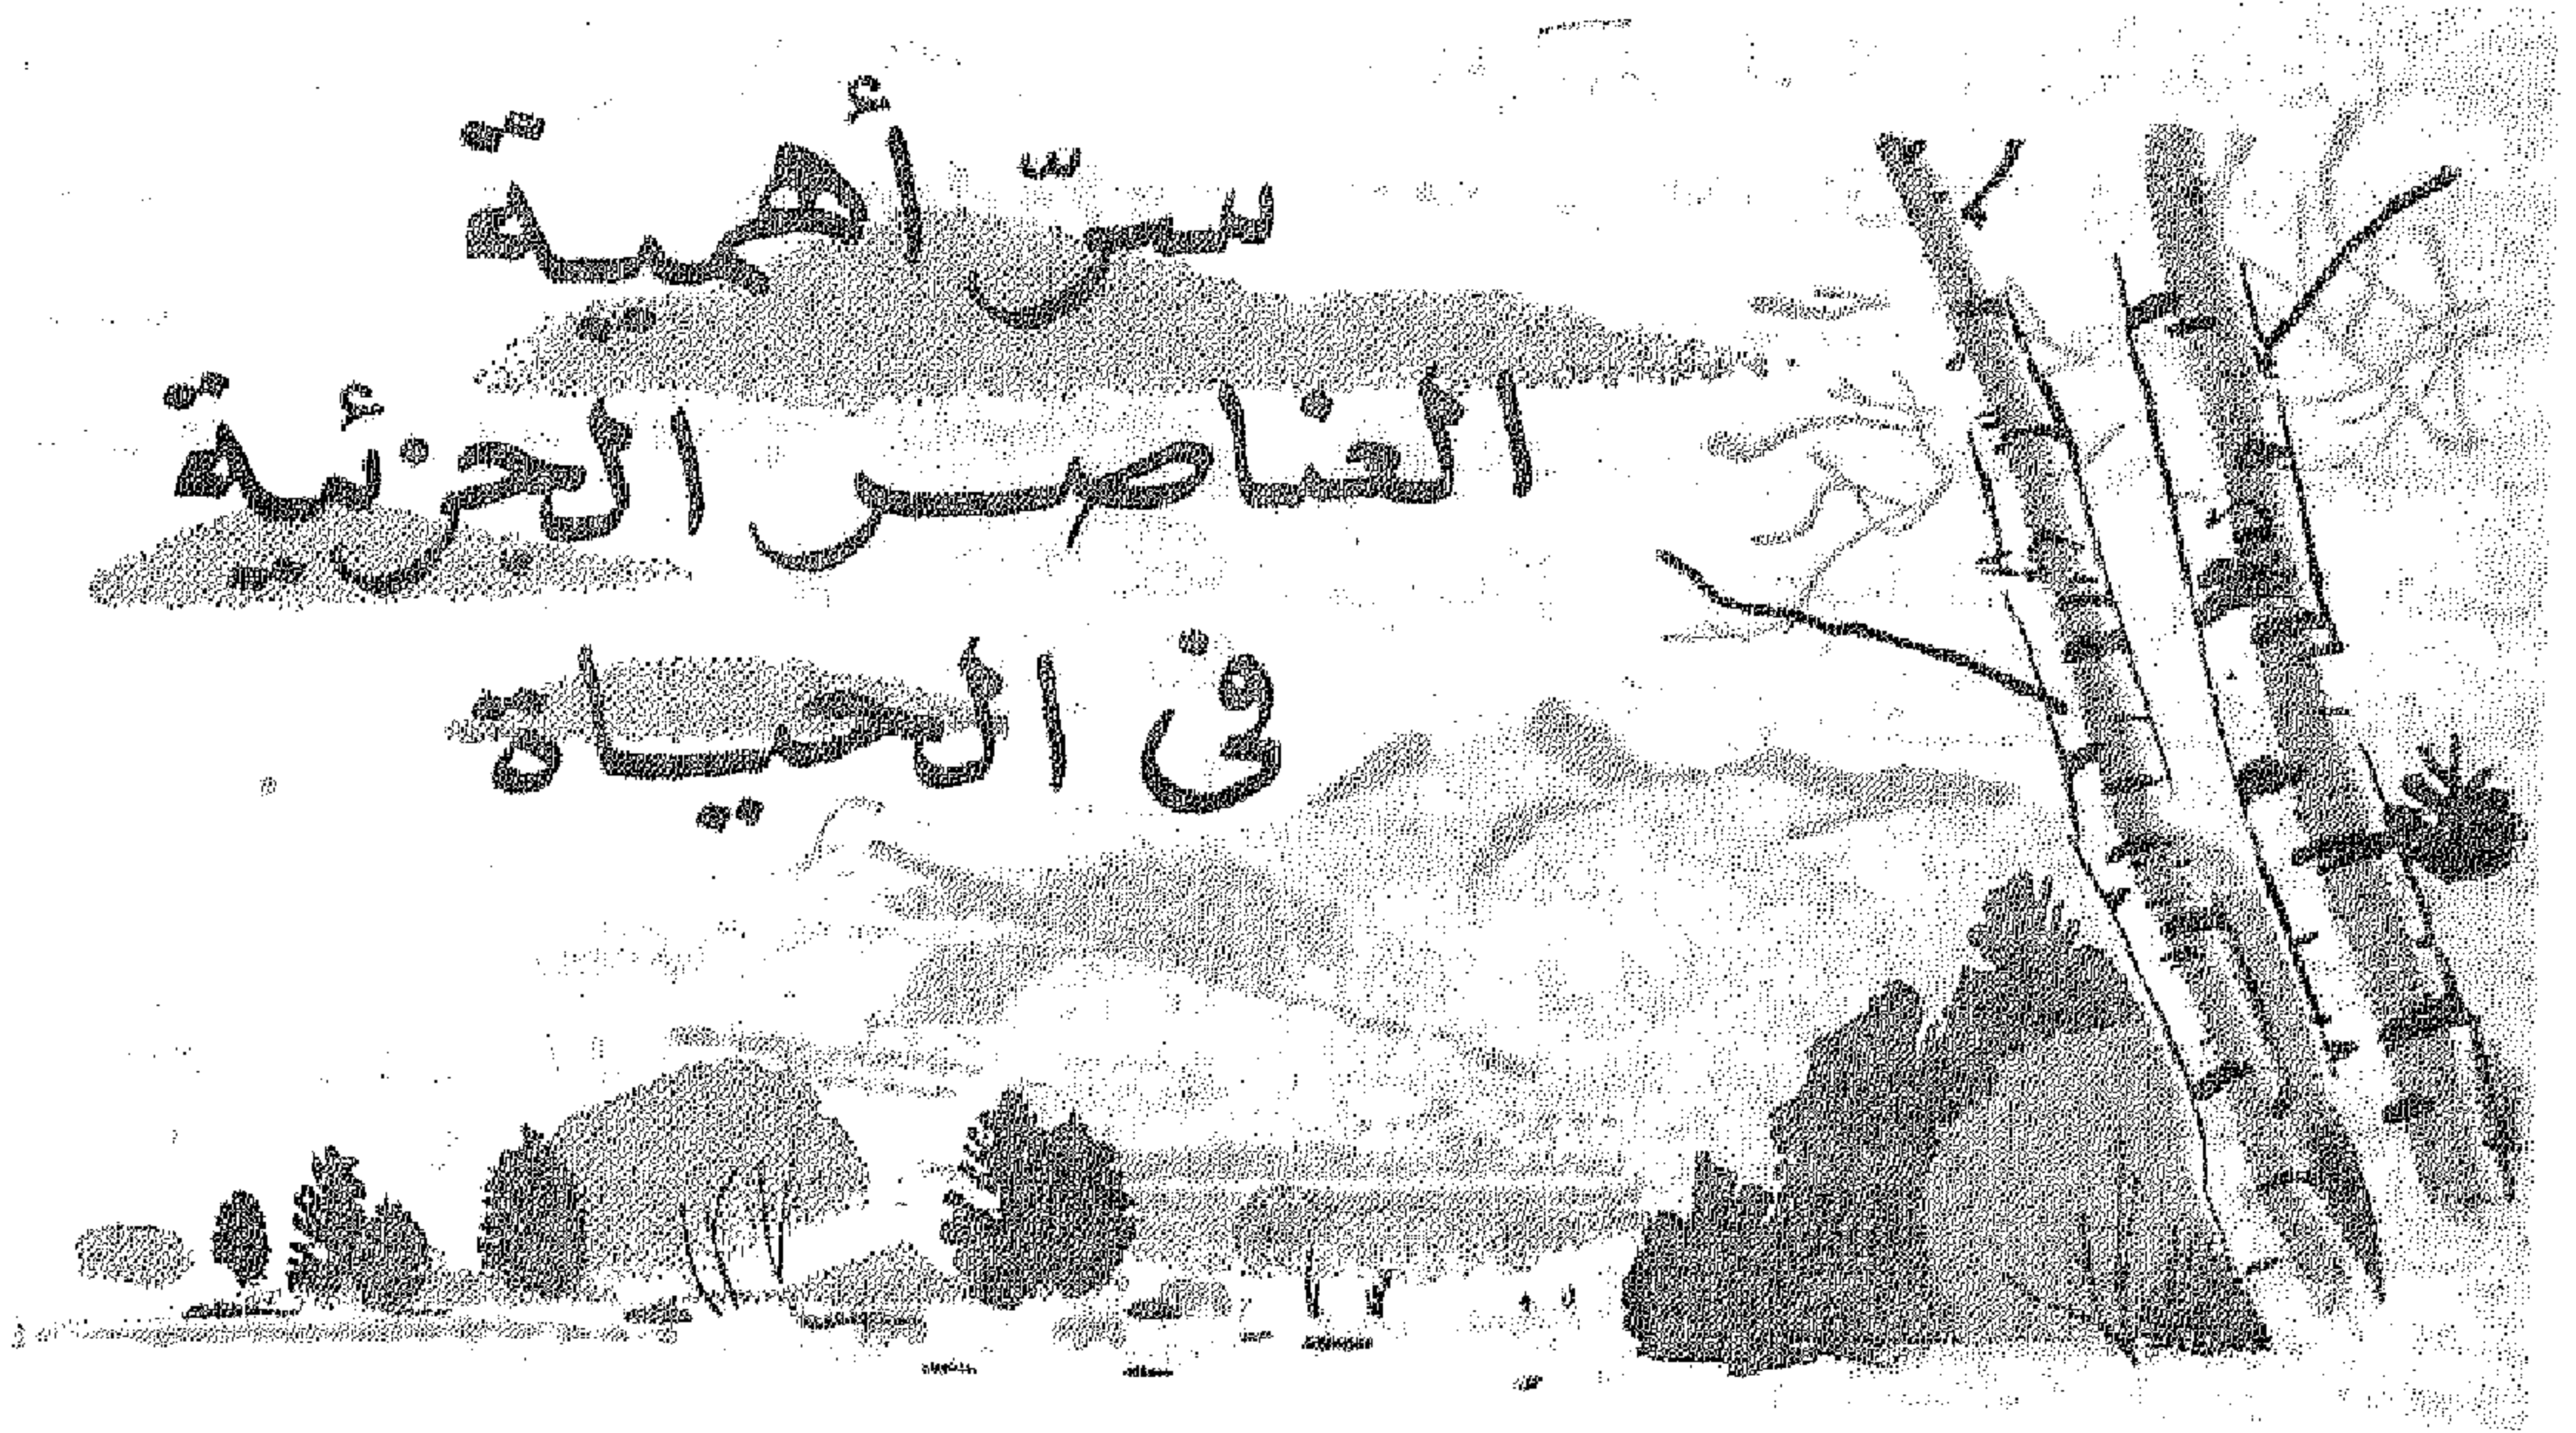 سر أهمية
العناصر الجزئية
فى الحياة